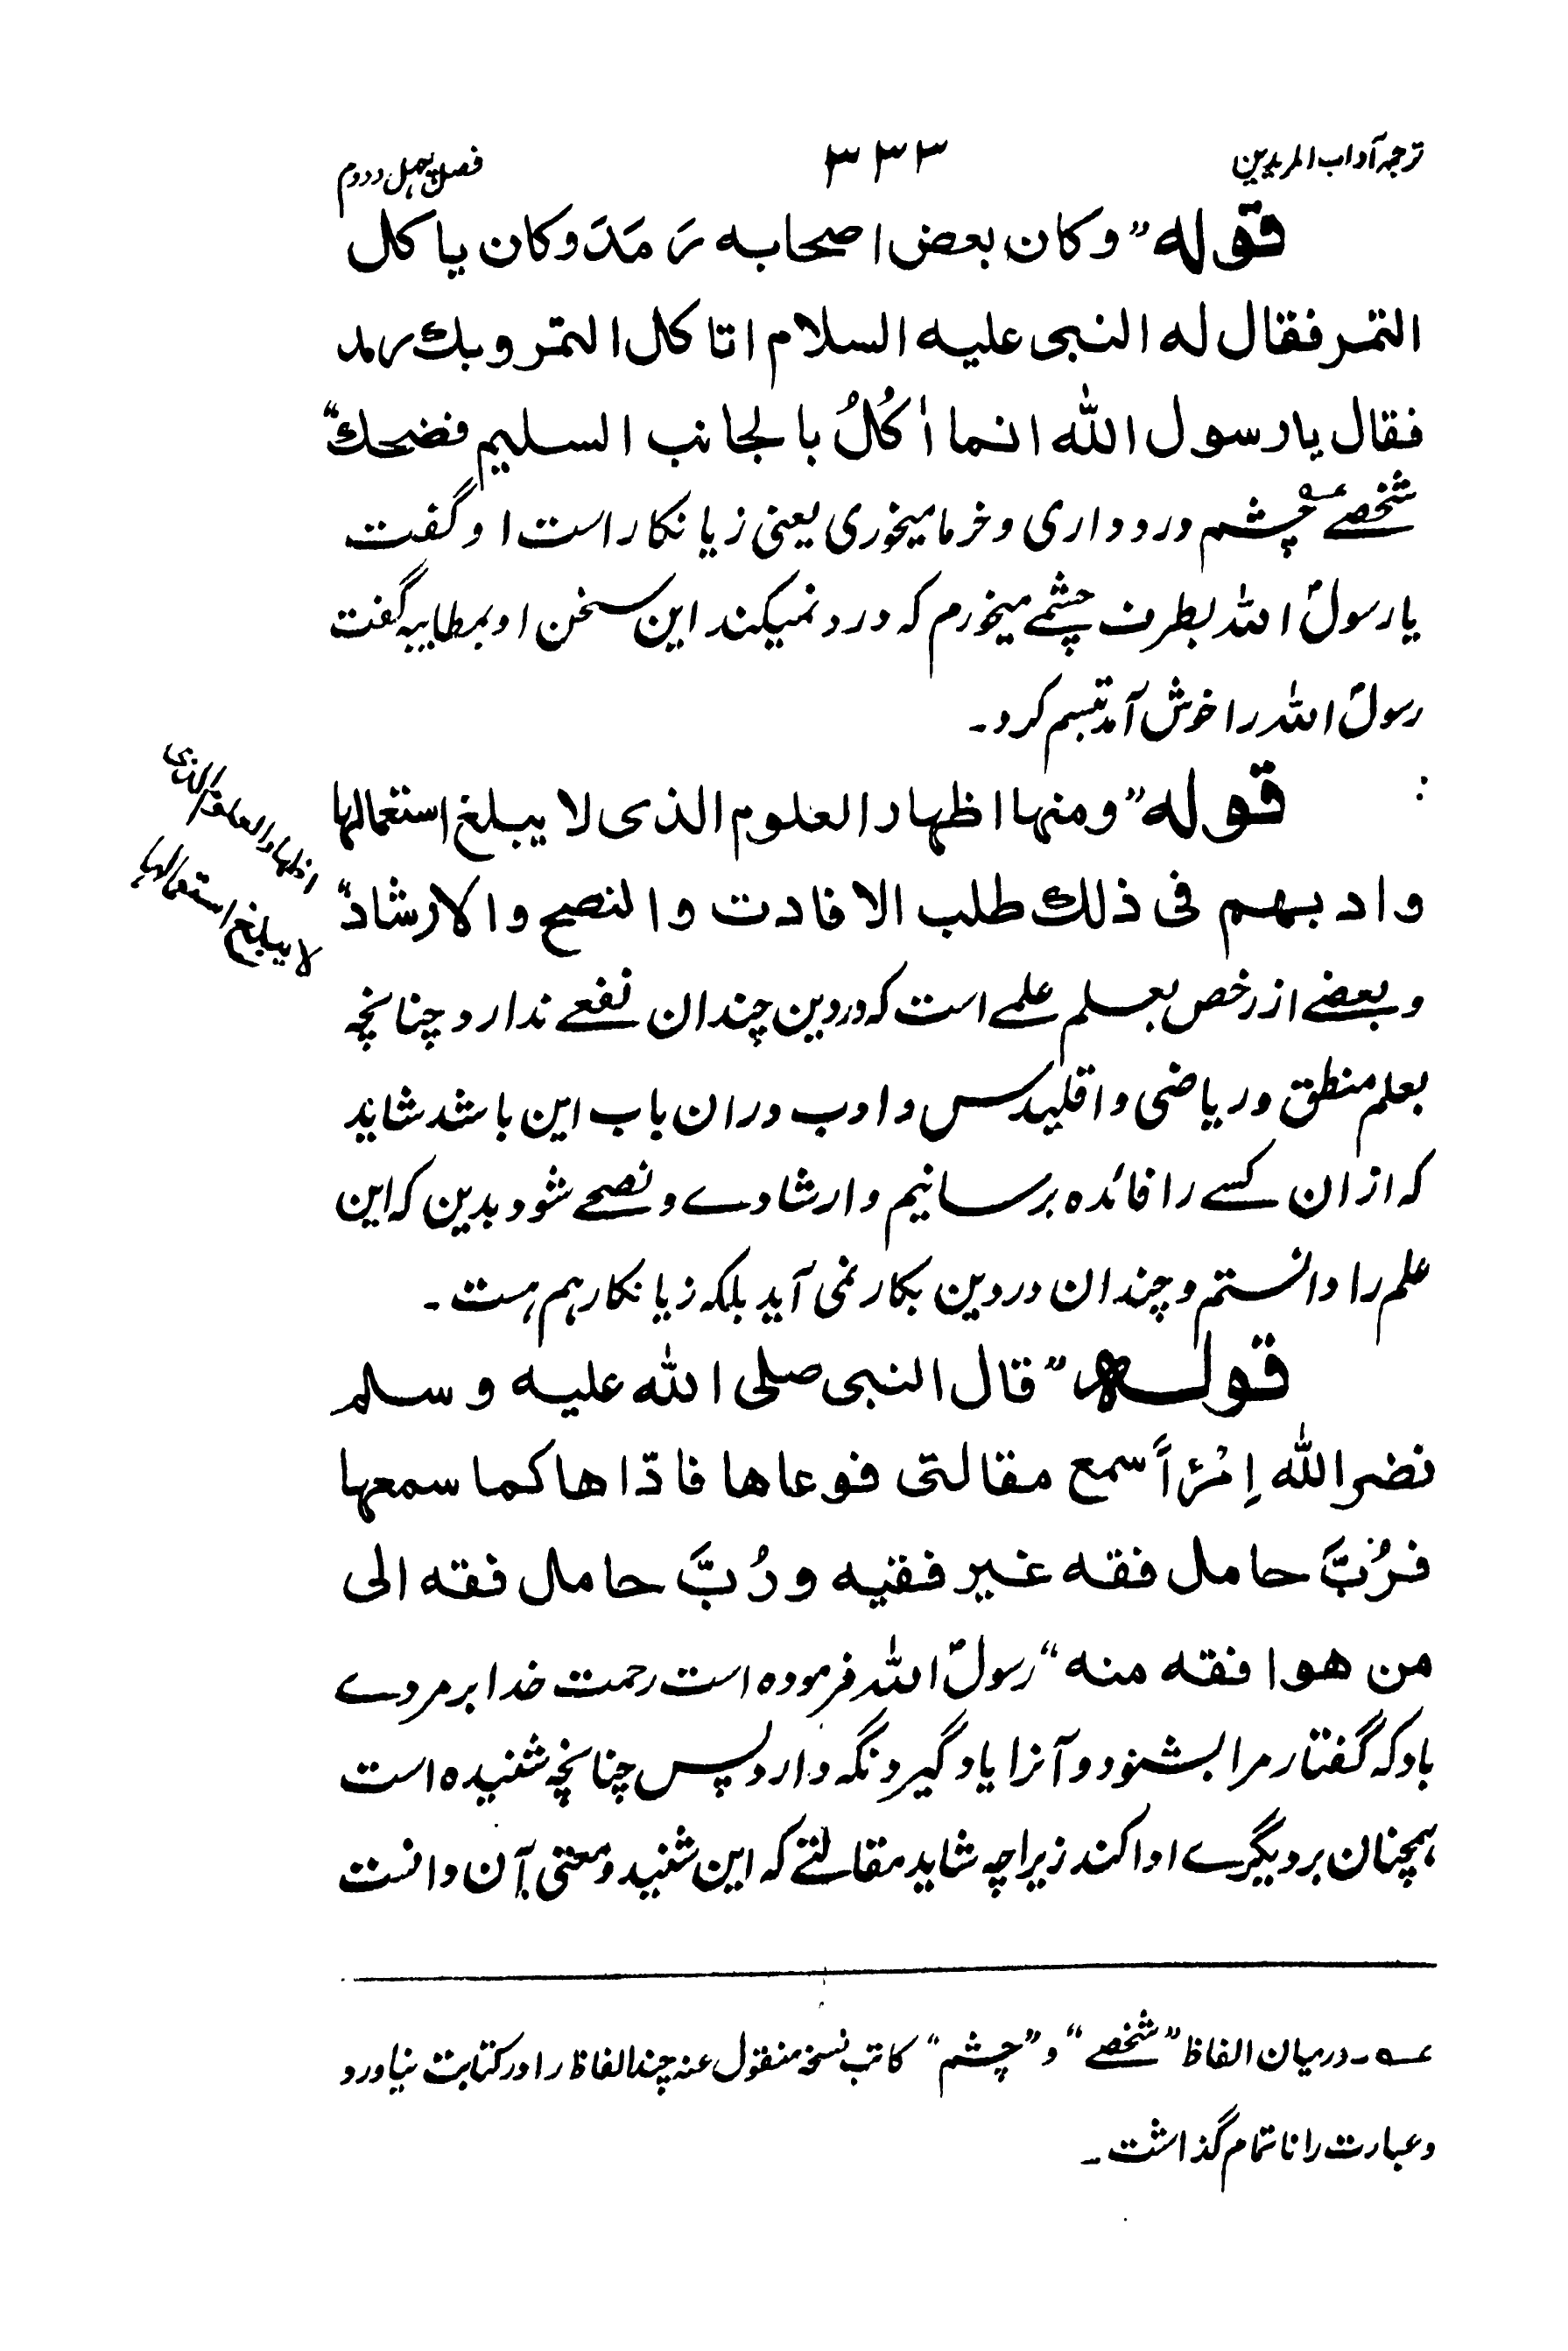 ترجمہ آداب المریدین ۳۳۳ فصل چہل و دوم
قوله ”وكان بعض اصحابه رَمَدَ وكان ياكل
التمر فقال له النبى عليه السلام اتاكل التمر وبك رمد
فقال يا رسول الله انما اٰكُلُ بالجانب السليم فضحك“
شخصے عــہ چشم درد داری و خرما میخوری یعنی زیانکار است او گفت
یا رسولؐ اللہ بطرف چشمے میخورم کہ درد نمیکند این سخن او بمطایبہ گفت
رسولؐ اللہ را خوش آمد تبسم کرد۔
قوله ”ومنها اظهار العلوم الذى لا يبلغ استعمالها
وادبهم فى ذلك طلب الافادت والنصح والارشاد“
اظهار العلوم الذى
لا يبلغ استعمالها
و بعضے از رخص بعلم علمے است کہ در دین چندان نفعے ندارد چنانچہ
بعلم منطق و ریاضی و اقلیدس و ادب در ان باب این باشد شاید
کہ از ان کسے را فائدہ برسانیم و ارشادے و نصحے شود بدین کہ این
علم را دانستم و چندان در دین بکار نمی آید بلکہ زیانکار ہم ہست۔
قوله ”قال النبى صلى الله عليه وسلم
نضر الله اِمْرَأً سمع مقالتى فوعاها فادّاها كما سمعها
فرُبَّ حامل فقه غير فقيه ورُبَّ حامل فقه الى
من هو افقه منه“ رسولؐ اللہ فرمودہ است رحمت خدا بر مردے
باد کہ گفتار مرا بشنود و آنرا یاد گیرد نگہ دارد پس چنانچہ شنیدہ است
ہمچنان بر دیگرے ادا کند زیراچہ شاید مقالتے کہ این شنید و معنی آن دانست
عــہ۔ درمیان الفاظ ”شخصے“ و ”چشم“ کاتب نسخہ منقول عنہ چند الفاظ را در کتابت نیاورد
و عبارت را ناتمام گذاشت۔